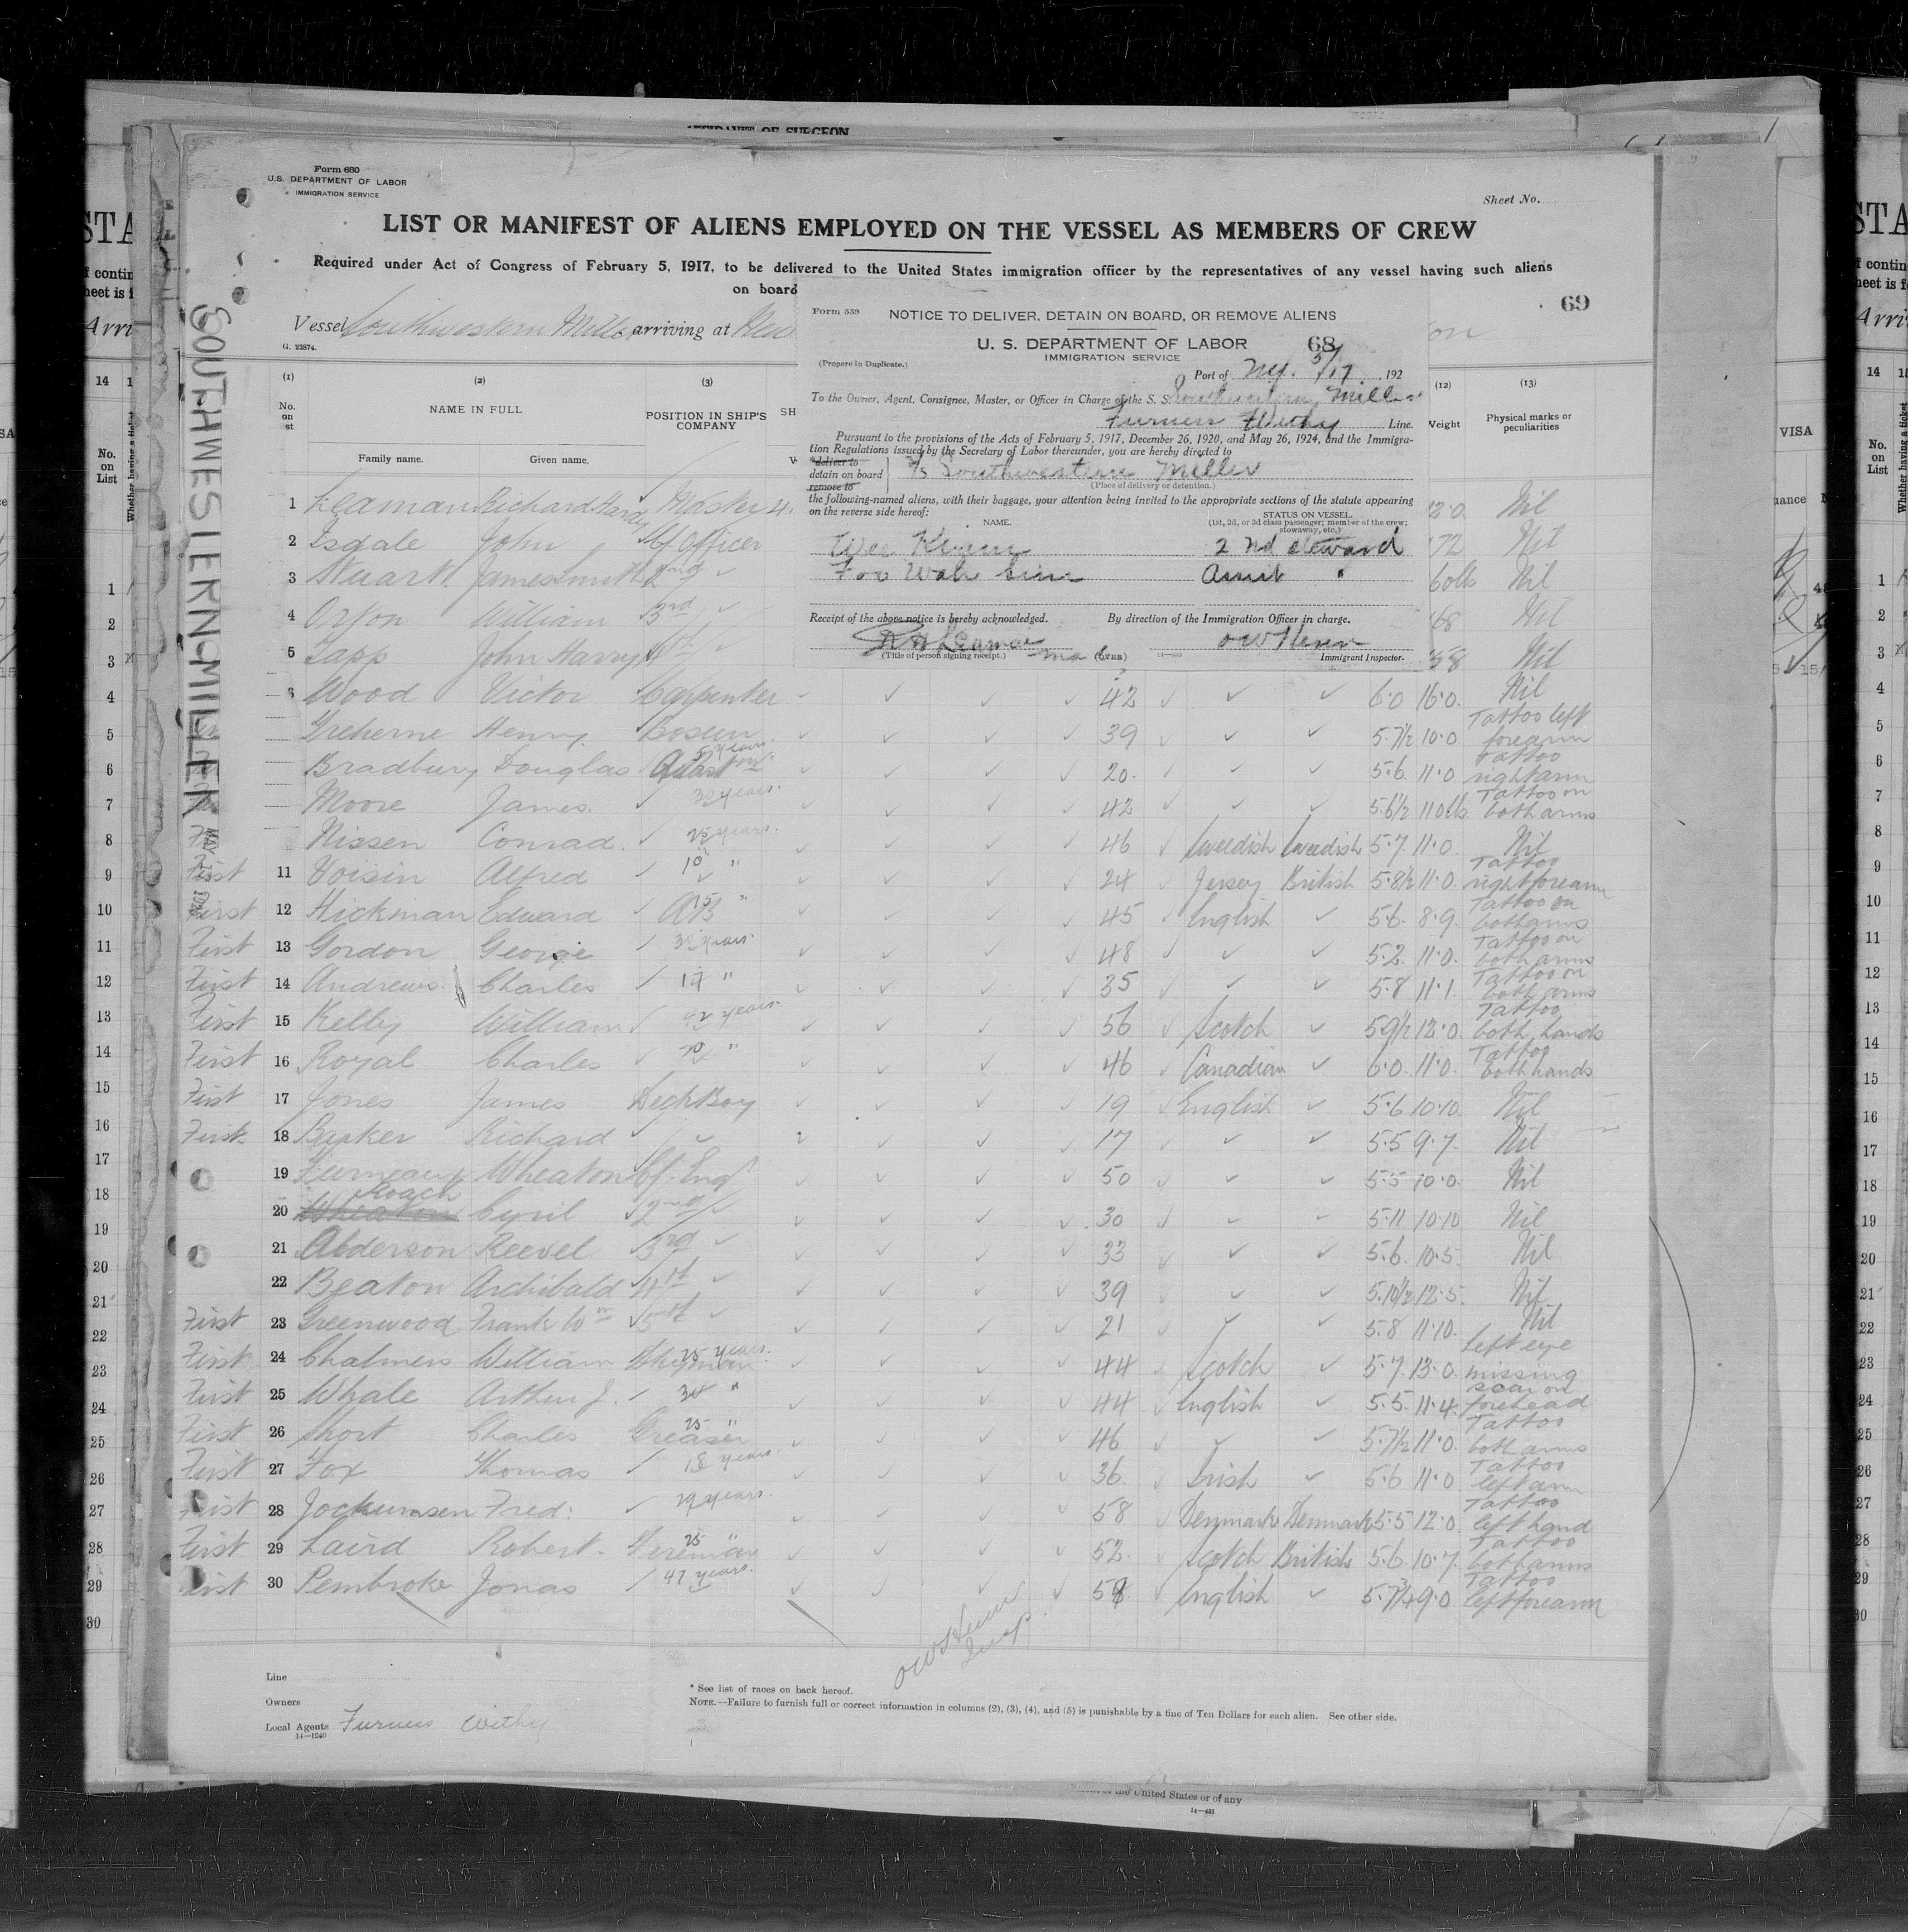 AFFIDAVIT OF SURGEON
Form 680
U.S. DEPARTMENT OF LABOR
IMMIGRATION SERVICE
Sheet No.
LIST OR MANIFEST OF ALIENS EMPLOYED ON THE VESSEL AS MEMBERS OF CREW
Required under Act of Congress of February 5, 1917, to be delivered to the United States immigration officer by the representatives of any vessel having such aliens
on board
69
Vessel Southwestern Miller, arriving at New
G. 23874.
SOUTHWESTERN MILLER
Form 559
NOTICE TO DELIVER, DETAIN ON BOARD, OR REMOVE ALIENS
U. S. DEPARTMENT OF LABOR 68
IMMIGRATION SERVICE
(Prepare in Duplicate.)
Port of N.Y. 5/17, 192
To the Owner, Agent, Consignee, Master, or Officer in Charge of the S. S. Southwestern Miller
Furness Withy Line.
Pursuant to the provisions of the Acts of February 5, 1917, December 26, 1920, and May 26, 1924, and the Immigra-
tion Regulations issued by the Secretary of Labor thereunder, you are hereby directed to
deliver to
detain on board S/S Southwestern Miller
remove to (Place of delivery or detention.)
the following-named aliens, with their baggage, your attention being invited to the appropriate sections of the statute appearing
on the reverse side hereof:
NAME. STATUS ON VESSEL.
(1st, 2d, or 3d class passenger; member of the crew;
stowaway, etc.)
Wee 2nd Steward
Foo Wah Asst "
Receipt of the above notice is hereby acknowledged. By direction of the Immigration Officer in charge.
R H Leaman
(Title of person signing receipt.) (OVER) Immigrant Inspector.
(1) (2) (3) (12) (13)
No. on st NAME IN FULL POSITION IN SHIP'S COMPANY Weight Physical marks or peculiarities
Family name. Given name.
1 Leaman Richard Hardy Master Nil
2 Isdale John Cf Officer 72 Nil
3 Stuart James Smith 2nd 60lb Nil
4 William 3rd 68 Nil
5 John Harry 4th 58 Nil
6 Wood Victor Carpenter 42 6.0 16.0 Nil
Treherne Henry Bosun 39 5.7½ 10.0 Tattoo left forearm
Bradbury Douglas 20 5.6 11.0 Tattoo right arm
Moore James 30 years 42 5.6½ 11.0lb Tattoo on both arms
Nissen Conrad 25 years 46 Swedish Swedish 5.7 11.0 Nil
First 11 Voisin Alfred 10 " 24 Jersey British 5.8½ 11.0 Tattoo right forearm
First 12 Hickman Edward AB 15 " 45 English 5.6 8.9 Tattoo on both arms
First 13 Gordon George 30 years 48 5.2 11.0 Tattoo on both arms
First 14 Andrews Charles 35 5.8 11.1 Tattoo on both arms
First 15 Kelly William 42 years 56 Scotch 5.9½ 13.0 Tattoo both hands
First 16 Royal Charles 46 Canadian 6.0 11.0 Tattoo both hands
First 17 Jones James Deck Boy 19 English 5.6 10.10 Nil
First 18 Barker Richard 17 5.5 9.7 Nil
19 Furneaux Wheaton Cf. Eng 50 5.5 10.0 Nil
20 Wheaton Roach Cyril 2nd 30 5.11 10.10 Nil
21 Alderson Reevel 3rd 33 5.6 10.5 Nil
22 Beaton Archibald 4th 39 5.10½ 12.5 Nil
First 23 Greenwood Frank Wm 5th 21 5.8 11.10 Nil
First 24 Chalmers William 25 years 44 Scotch 5.7 13.0 left eye missing
First 25 Whale Arthur J. 30 " 44 English 5.5 11.4 scar on forehead
First 26 Short Charles Greaser 25 " 46 5.7½ 11.0 Tattoo both arms
First 27 Fox Thomas 18 years 36 Irish 5.6 11.0 Tattoo left arm
First 28 Jochumsen Fred: 29 years 58 Denmark Denmark 5.5 12.0 Tattoo left hand
First 29 Laird Robert Fireman 25 " 52 Scotch British 5.6 10.7 Tattoo both arms
First 30 Pembroke Jonas 41 years 58 English 5.7¾ 9.0 Tattoo left forearm
Insp.
Line
Owners
Local Agents Furness Withy
14—1240
* See list of races on back hereof.
NOTE.—Failure to furnish full or correct information in columns (2), (3), (4), and (5) is punishable by a fine of Ten Dollars for each alien. See other side.
the United States or of any